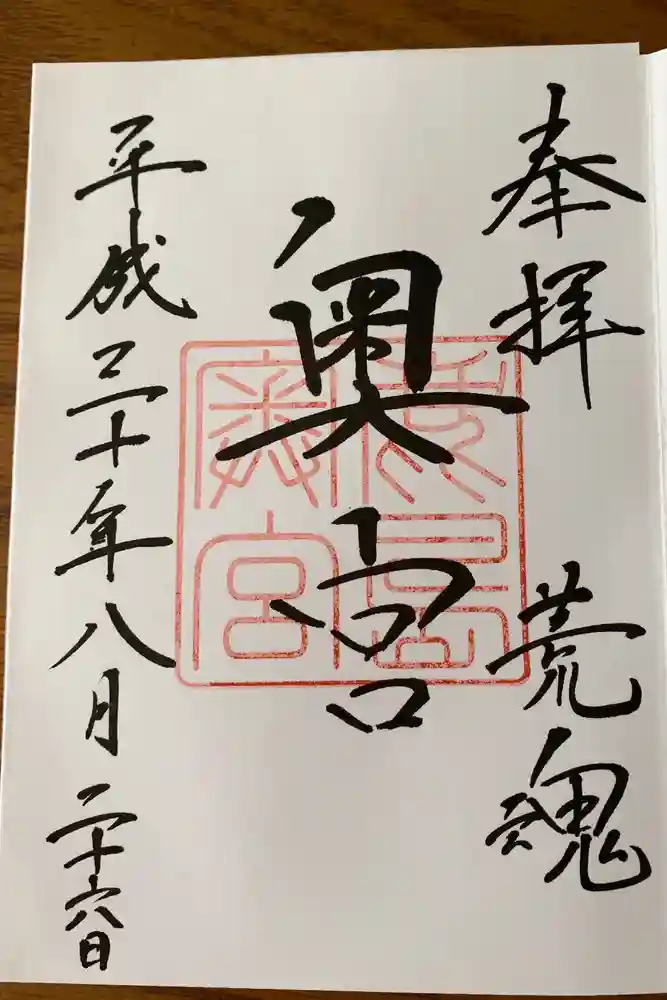 奉拝 荒魂
奥宮
平成三十年八月二十六日
鹿島
奥宮